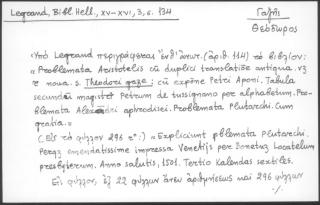 Legrand, Bibl. Hell., XV-XVI, 3, σ. 134
Γαζῆς
Θεόδωρος
Ὑπὸ Legrand περιγράφεται ἐνθ' ἀνωτ. (ἀριθ. 114) τὸ βιβλίον:
« Problemata Aristotelis cũ duplici translatiõe antiqua. vz
et noua. s. Theodori gaze: cũ expõne Petri Aponi. Tabula
secundũ magistrũ Petrum de tussignano per alphabetum. Pro-
blemata Alexandri aphrodisei. Problemata Plutarchi. Cum
gratia.»
(Εἰς τὸ φύλλον 296 rº:) «Expliciunt pblemata Plutarchi.
emendatissime impressa Venetijs per Bonetuʒ Locatelum
presbyterum. Anno salutis, 1501. Tertio Kalendas sextiles.
Εἰς φύλλον, ἐξ 22 φύλλων ἄνευ ἀριθμήσεως καὶ 296 φύλλων
·/.